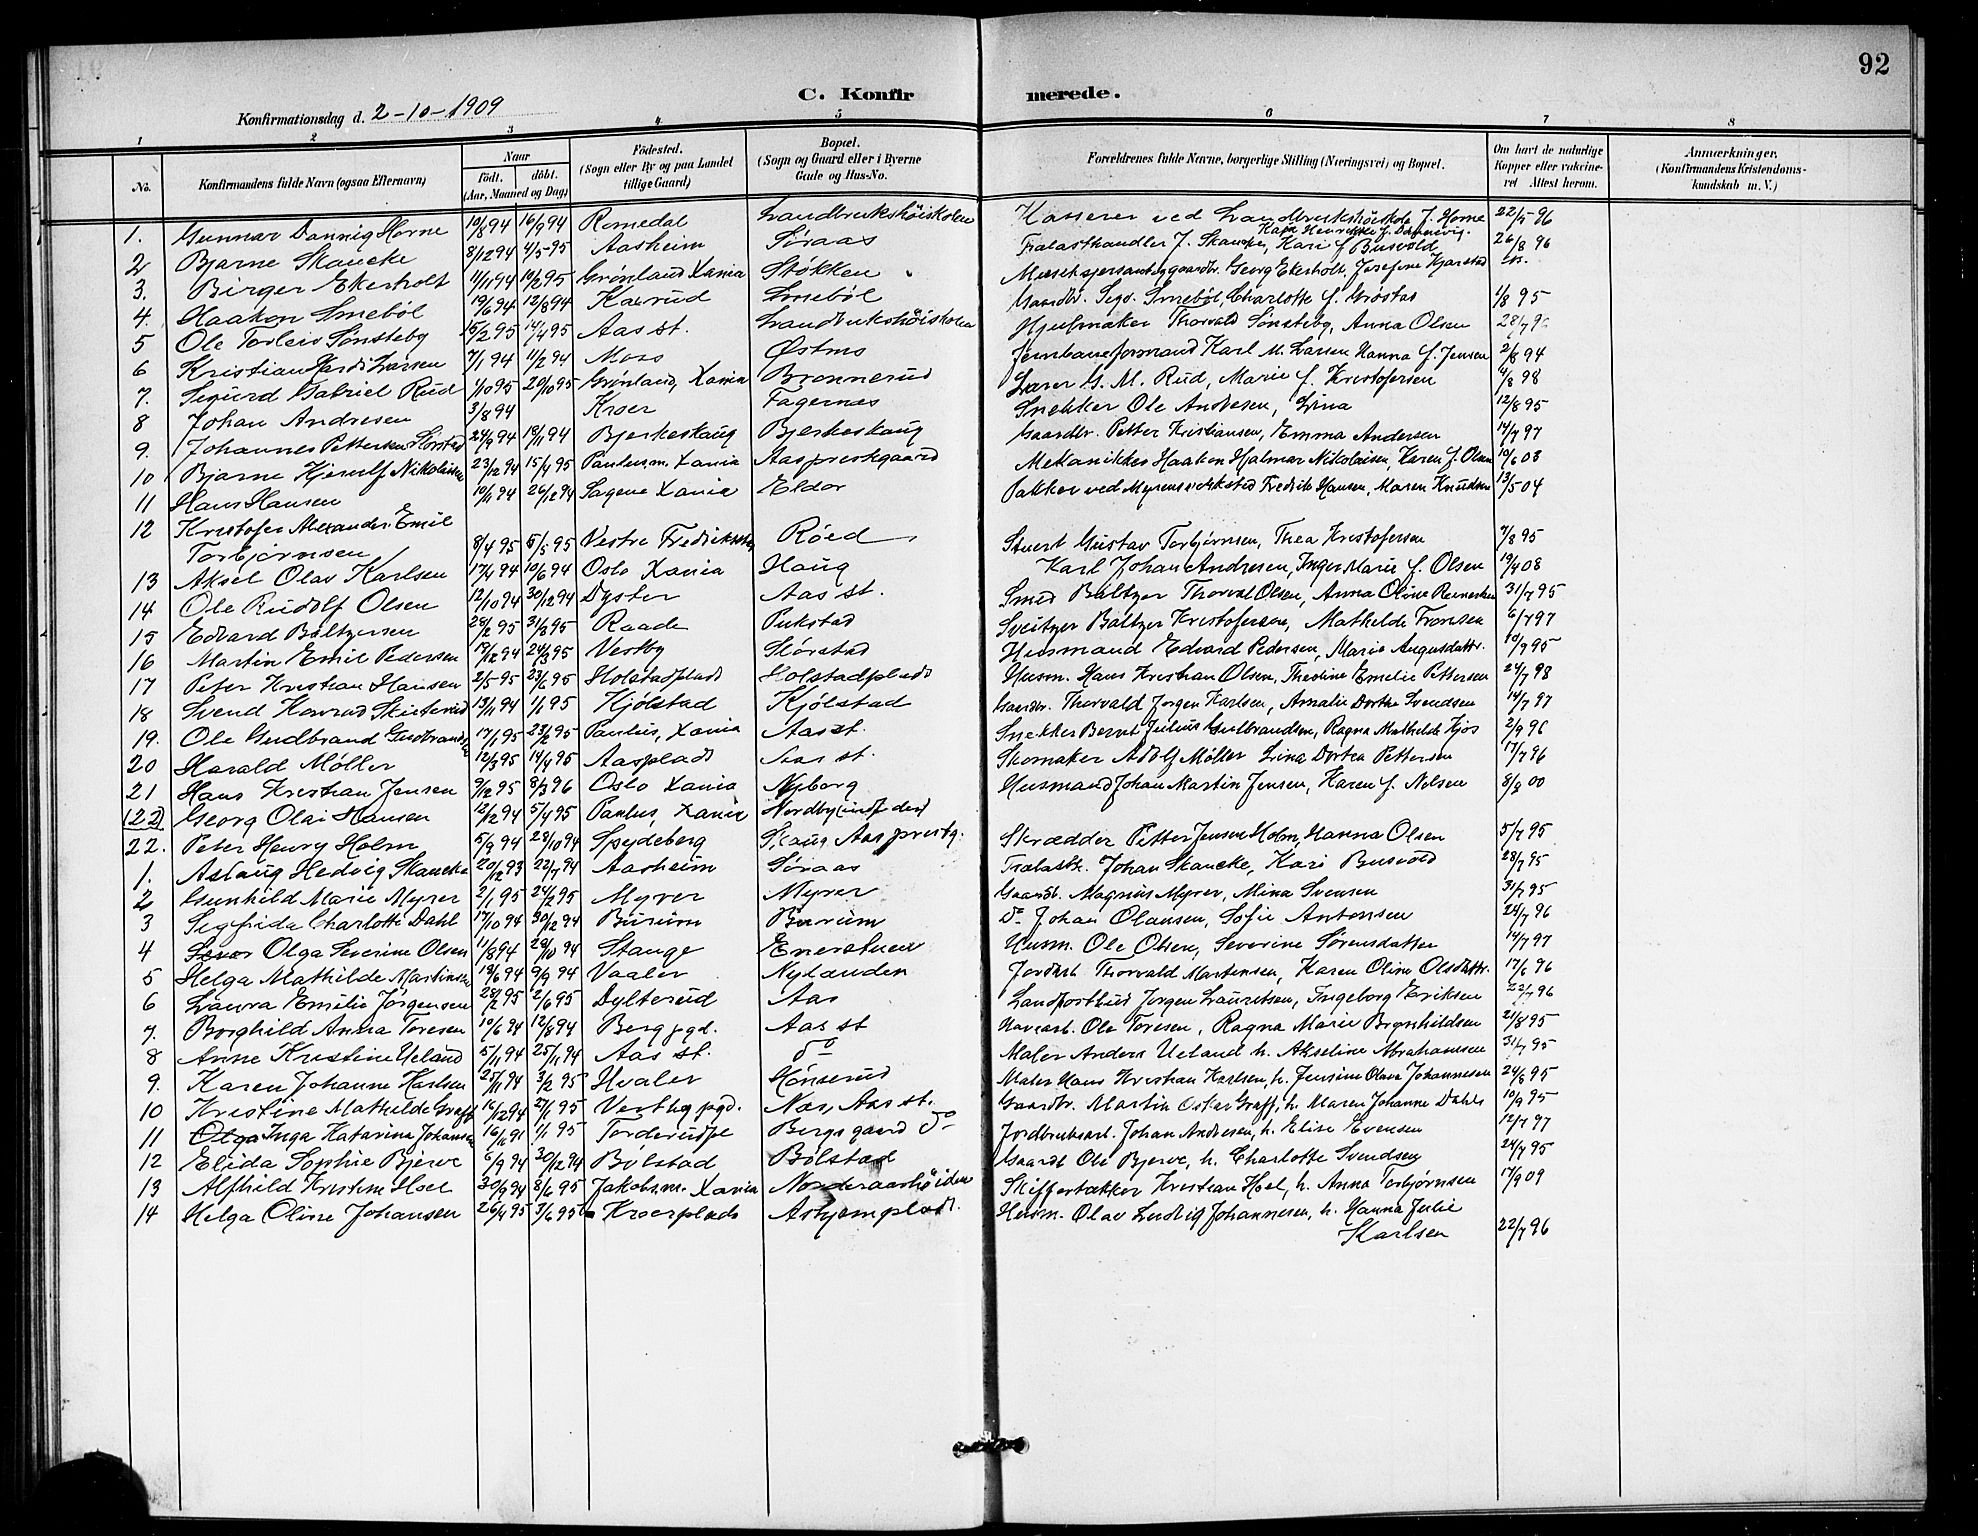 92
C. Konfirmerede.
Konfirmationsdag d. 2-10-1909
1 2 3 4 5 6 7 8
No. Konfirmandens fulde Navn (ogsaa Efternavn) Naar födt. döbt. (Aar, Maaned og Dag) Födested. (Sogn eller By og paa Landet tillige Gaard) Bopæl. (Sogn og Gaard eller i Byerne Gade og Hus-No. Forældrenes fulde Navne, borgerlige Stilling (Næringsvei) og Bopæl. Om havt de naturlige Kopper eller vakcineret Attest herom. Anmærkninger. (Konfirmandens Kristendomskundskab m. V.)
1. Gunnar Dannig Horne 10/8 94 16/9 94 Romedal Landbrukshöiskolen Kasserer ved Landbrukshöiskole J. Horne 22/5 96
2 Bjarne Skancke 8/12 94 4/5-95 Aasheim Søraas Trælasthandler J. Skancke, Kari f. Busvold 26/8 96
3. Birger Ekerholt 11/11 94 10/2 95 Grønland Xania Støkken Georg Ekerholt, Josefine Kjarstad
4. Haakon Smebøl 19/6 94 12/8 94 Kaxrud Smebøl Gaardbr. Sigv. Smebøl, Charlotte f. Grøstad 1/8 95
5 Ole Torleiv Sønsteby 15/2 95 14/4 95 Aas st. Landbrukshöiskolen Hjulmaker Thorvald Sønsteby, Anna Olsen 28/7 96
6 Kristian Hardi Larsen 7/1 94 11/2 94 Moss Østmo Jernbaneformand Karl M. Larsen Hanna f. Jensen 2/8 94
7. Sigurd Gabriel Rud 1/10 95 20/10 95 Grønland, Xania Brønnerud Lærer G. M. Rud, Marie f. Kristofersen 4/8 98
8 Johan Andresen 3/8 94 Kroer Fagernæs Snekker Ole Andresen, Lina 12/8 95
9. Johannes Pettersen Slørstad 24/9 94 18/11 94 Bjerkeskaug Bjerkeskaug Gaardbr. Petter Kristiansen, Emma Andersen 14/7 97
10 Bjarne Kjerulf Nikolaisen 23/12 94 15/4 95 Paulus.m. Xania Aas prestgaard Mekanikker Haakon Hjalmar Nikolaisen, Karen f. Olsen 10/6 08
11 Hans Hansen 10/11 94 26/12 94 Sagene Xania Eldor Pakker ved Myrens verksted Fredrik Hansen, Maren Knudsen 13/5 04
12 Kristofer Alexander Emil
Torbjørnsen 8/4 95 5/5 95 Vestre Fredrikstad Røed Stuert Gustav Torbjørnsen, Thea Kristofersen 7/8 95
13 Aksel Olav Karlsen 17/4 94 10/6 94 Oslo Xania Haug Karl Johan Andresen, Inger Marie f. Olsen 19/4 08
14 Ole Rudolf Olsen 12/10 94 30/12 94 Dyster Aas st. Smed Baltzer Thorval Olsen, Anna Oline 31/7 95
15 Edvard Baltzersen 28/2 95 31/3 95 Raade Pukstad Sveitzer Baltzer Kristofersen, Mathilde Fransen 6/7 97
16 Martin Emil Pedersen 19/12 94 24/3 95 Vestby Slørstad Husmand Edvard Pedersen, Marie Augusdattr. 10/9 95
17 Peter Kristian Hansen 2/5 95 23/6 95 Holstadplads Holstadplads Husm. Hans Kristian Olsen, Theoline Emelie Pettersen 24/7 98
18 Svend Konrad Skuterud 13/11 94 1/1 95 Kjølstad Kjølstad Gaardbr. Thorvald Jørgen Karlsen, Amalie Dorthe Svendsen 14/7 97
19. Ole Gudbrand 17/1 95 23/2 95 Paulus, Xania Aas st. Snekker Bernt Julius Gulbrandsen, Ragna Mathilde Kjos 2/9 96
20 Harald Møller 12/3 95 14/4 95 Aasplads Aas st. Skomaker Adolf Møller Lina Dortea Pettersen 17/7 96
21 Hans Kristian Jensen 9/12 95 8/3 96 Oslo Xania Nyborg Husmand Johan Martin Jensen, Karen f. Nelsen 8/8 00
(22) Georg Olai Hansen 12/12 94 5/4 95 Paulus, Xania Nordby (indf. der)
22. Peter Henry Holm 5/9 94 28/10 94 Spydeberg Skaug Aas prestg. Skrædder Petter Jensen Holm, Hanna Olsen 5/7 95
1. Aslaug Hedvig Skancke 20/12 93 22/7 94 Aasheim Søraas Trælasth. Johan Skancke, Kari Busvold 28/7 95
2 Gunhild Marie Myrer 2/1 95 24/2 95 Myrer Myrer Gaardb. Magnus Myrer, Mina Svensen 31/7 95
3 Sigfrida Charlotte Dahl 17/10 94 30/12 94 Burum Burum do Johan Olausen, Sofie Antonsen 24/7 96
4 Olga Severine Olsen 11/8 94 28/10 94 Stange Enerstuen Husm. Ole Olsen, Severine Sørensdatter 14/7 97
5 Helga Mathilde Martinsen 19/6 94 9/9 94 Vaaler Nylænden Jordarb. Thorvald Martensen, Karen Oline Olsdattr. 17/6 96
6 Laura Emilie Jørgensen 28/2 95 2/6 95 Dylterud Aas Landpostbud Jørgen Lauritsen, Ingeborg Eriksen 22/7 96
7. Borghild Anna Toresen 10/6 94 12/8 94 Berg pgd. Aas st Ole Toresen, Ragna Marie Brynhildsen 21/8 95
8 Anne Kristine Ueland 5/11 94 25/11 94 Aas st. do Maler Anders Ueland h. Akseline Abrahamsen 31/7 95
9. Karen Johanne Karlsen 25/11 94 3/2 95 Hvaler Hønserud Maler Hans Kristian Karlsen, h. Jensine Olava Johannesen 24/6 95
10 Kristine Mathilde Graff 16/12 94 27/1 95 Vestby pgd. Næs, Aas st. Gaardbr. Martin Oskar Graff, h. Maren Johanne Dahls 10/9 95
11 Olga Inga Katarina Johansen 16/12 91 1/1 95 Torderudpl Bergsgaard do Jordbruksarb. Johan Andresen, h. Elise Evensen 12/7 97
12 Elida Sophie Bjerve 6/9 94 30/12 94 Bølstad Bølstad Gaardb Ole Bjerve, h. Charlotte Svendsen 24/7 95
13 Alfhild Kristine Hoel 30/9 94 8/6 95 Jakobs.m. Xania Norderaashöiden Skiffertækker Kristian Hoel, h. Anna Torbjørnsen 17/9 09
14 Helga Oline Johansen 26/4 95 3/6 95 Kroerplads Askjemplads. Husm. Olav Ludvig Johannesen, h. Hanna Julie
Karlsen 22/7 96